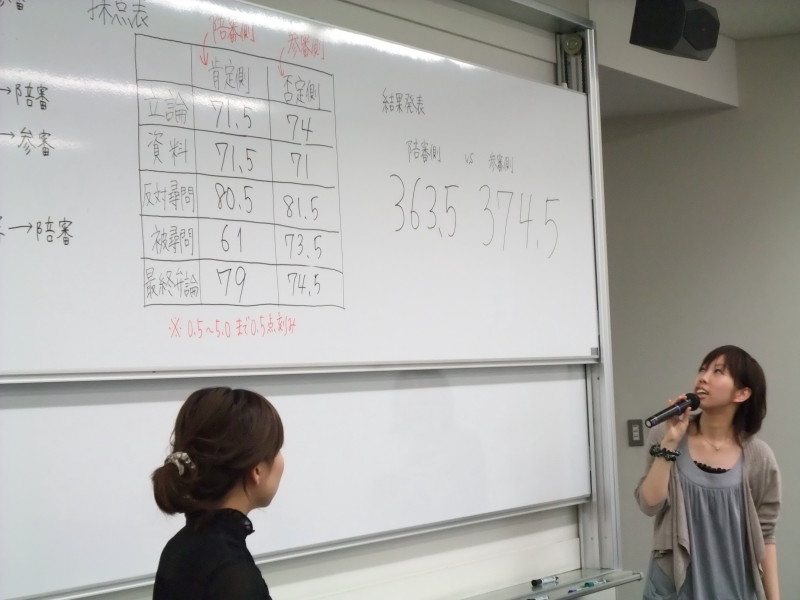 採点表
陪審側 参審側
肯定側 否定側
立論 71.5 74
資料 71.5 71
反対尋問 80.5 81.5
被尋問 61 73.5
最終弁論 79 74.5
※ 0.5~5.0 まで0.5点刻み
→陪審
→参審
→陪審
結果発表
陪審側 vs 参審側
363.5 374.5